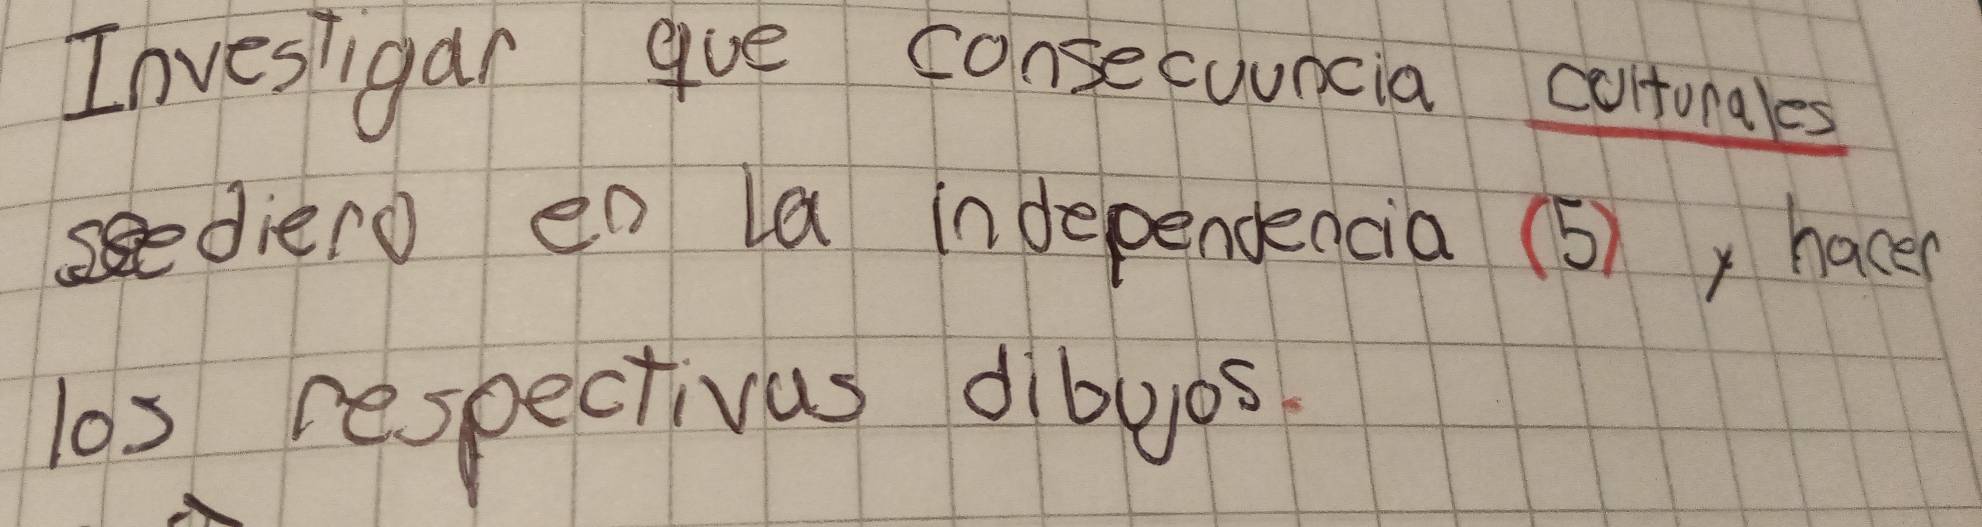 Investigar que consecuuncia culturales
se diero en la independencia (5) y hacer
los respectivus dibujos.